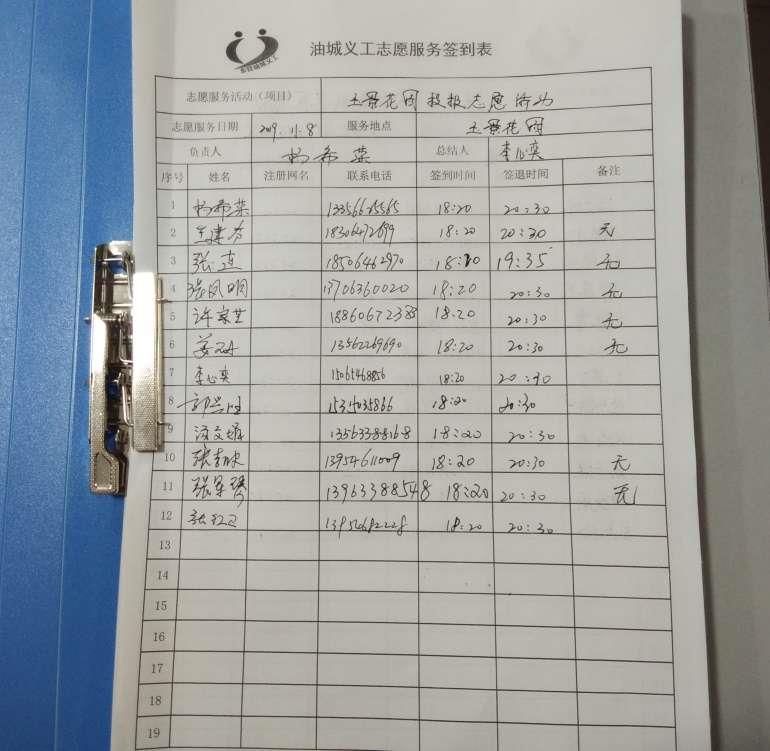 东营油城义工
油城义工志愿服务签到表
志愿服务活动（项目） 花园 志愿活动
志愿服务日期 2019.11.8 服务地点 花园
负责人 杨希荣 总结人 李心奕
序号 姓名 注册网名 联系电话 签到时间 签退时间 备注
1 杨希荣 18:20 20:30
2 18306472699 18:20 20:30 无
3 张 18506462970 18:20 19:35 无
4 张凤明 13706360020 18:20 20:30 无
5 许 18:20 20:30 无
6 姜 13562269690 18:20 20:30 无
7 李心奕 15065468856 18:20 20:30
8 郭 18:20 20:30
9 13563388168 18:20 20:30
10 张 13954611009 18:20 20:30 无
11 张 13963388548 18:20 20:30 无
12 张红卫 18:20 20:30
13
14
15
16
17
18
19